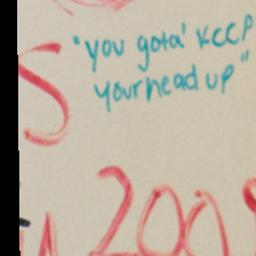 "you gota' KCCP
your head up"
S
200